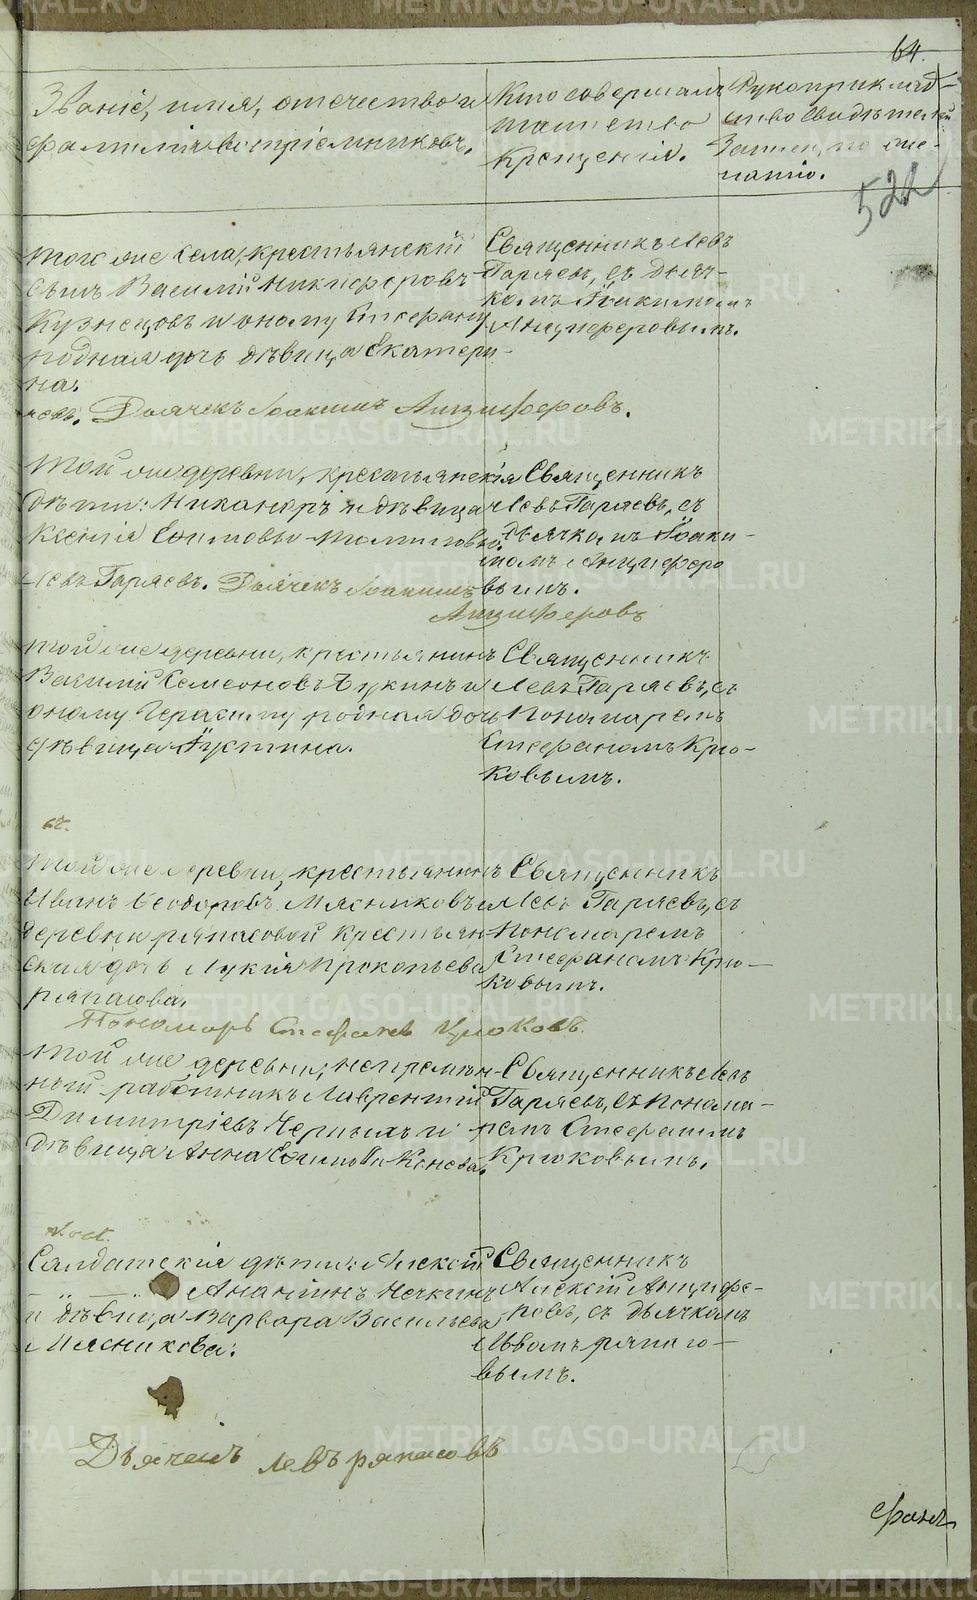 64.
Званіе, имя, отечество и
фамилія воспріемниковъ.
Кто совершалъ
таинство
крещенія.
Рукоприклад-
ство свидѣтелей
записи, по же-
ланію.
522
Того же села, крестьянскій
сынъ Василій Никифоровъ
Кузнецовъ и оному Стефану
родная дочь дѣвица Екатери-
на.
Священникъ Левъ
Гаряевъ, съ дьяч-
комъ Іоакимомъ
Анциферовымъ.
Дьячекъ Іоакимъ Анциферовъ.
Той же деревни, крестьянскія
дѣти: Никаноръ и дѣвица
Ксенія Ефимовы
Священникъ
Левъ Гаряевъ, съ
дьячкомъ Іоаки-
момъ Анциферо
вымъ.
Левъ Гаряевъ. Дьячекъ Іоакимъ
Анциферовъ
Той же деревни, крестьянинъ
Василій Семеоновъ Букинъ и
оному Герасиму родная дочь
дѣвица Іустина.
Священникъ
Левъ Гаряевъ, съ
пономаремъ
Стефаномъ Крю-
ковымъ.
Той же деревни, крестьянинъ
Иванъ Феодоровъ Мясниковъ и
деревни Ряпасовой крестьян-
ская дочь Лукія Прокопьева
Ряпасова.
Священникъ
Левъ Гаряевъ, съ
пономаремъ
Стефаномъ Крю-
ковымъ.
Пономарь Стефанъ Крюковъ.
Той же деревни, непремѣн-
ный работникъ Лаврентій
Димитріевъ Черныхъ и
дѣвица Анна Ефимова Конева.
Священникъ Левъ
Гаряевъ, съ понома-
ремъ Стефаномъ
Крюковымъ.
Солдатскія дѣти: Алексій
Ананьинъ Нечкинъ
и дѣвица Варвара Васильева
Мясникова.
Священникъ
Алексій Анцифе-
ровъ, съ дьячкомъ
Львомъ Ряпасо-
вымъ.
Дьячекъ Левъ Ряпасовъ
METRIKI.GASO-URAL.RU